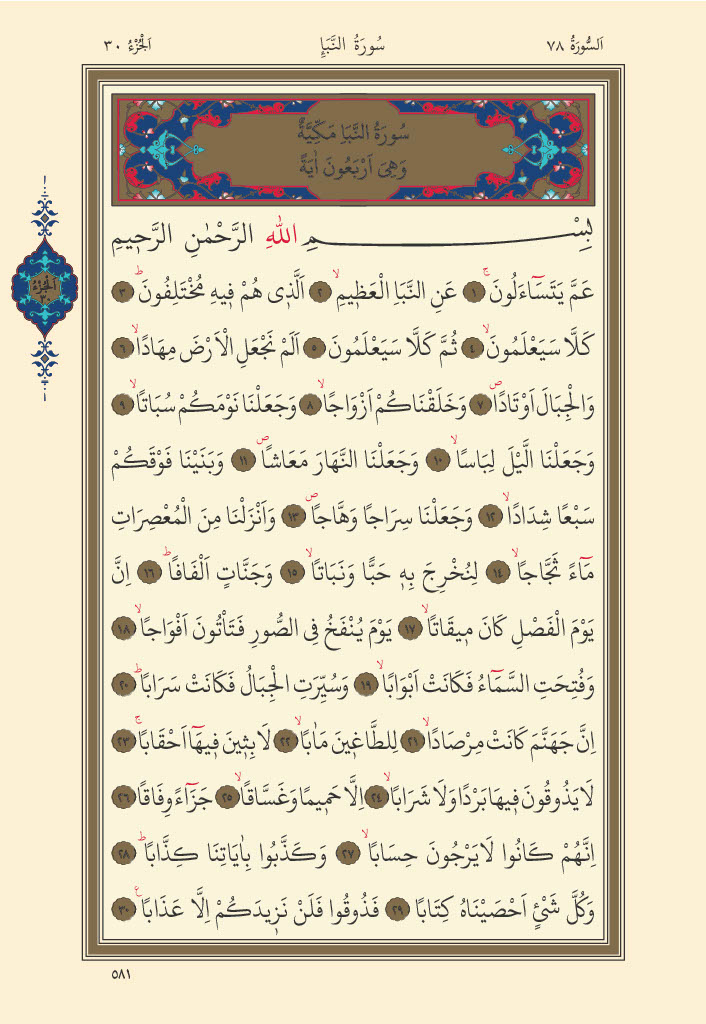 اَلسُّورَةُ ٧٨
سُورَةُ النَّبَاِ
اَلْجُزْءُ ٣٠
سُورَةُ النَّبَاِ مَكِّيَّةٌ
وَهِيَ اَرْبَعُونَ اٰيَةً
اَلْجُزْءُ ٣٠
بِسْمِ اللّٰهِ الرَّحْمٰنِ الرَّحٖيمِ
عَمَّ يَتَسَٓاءَلُونَۚ ١ عَنِ النَّبَاِ الْعَظٖيمِۙ ٢ اَلَّذٖى هُمْ فٖيهِ مُخْتَلِفُونَۜ ٣
كَلَّا سَيَعْلَمُونَۙ ٤ ثُمَّ كَلَّا سَيَعْلَمُونَ ٥ اَلَمْ نَجْعَلِ الْاَرْضَ مِهَادًاۙ ٦
وَالْجِبَالَ اَوْتَادًاۖ ٧ وَخَلَقْنَاكُمْ اَزْوَاجًاۙ ٨ وَجَعَلْنَا نَوْمَكُمْ سُبَاتًاۙ ٩
وَجَعَلْنَا الَّيْلَ لِبَاسًاۙ ١٠ وَجَعَلْنَا النَّهَارَ مَعَاشًاۖ ١١ وَبَنَيْنَا فَوْقَكُمْ
سَبْعًا شِدَادًاۙ ١٢ وَجَعَلْنَا سِرَاجًا وَهَّاجًاۖ ١٣ وَاَنْزَلْنَا مِنَ الْمُعْصِرَاتِ
مَٓاءً ثَجَّاجًاۙ ١٤ لِنُخْرِجَ بِهٖ حَبًّا وَنَبَاتًاۙ ١٥ وَجَنَّاتٍ اَلْفَافًاۜ ١٦ اِنَّ
يَوْمَ الْفَصْلِ كَانَ مٖيقَاتًاۙ ١٧ يَوْمَ يُنْفَخُ فِى الصُّورِ فَتَأْتُونَ اَفْوَاجًاۙ ١٨
وَفُتِحَتِ السَّمَٓاءُ فَكَانَتْ اَبْوَابًاۙ ١٩ وَسُيِّرَتِ الْجِبَالُ فَكَانَتْ سَرَابًاۜ ٢٠
اِنَّ جَهَنَّمَ كَانَتْ مِرْصَادًاۙ ٢١ لِلطَّاغٖينَ مَاٰبًاۙ ٢٢ لَابِثٖينَ فٖيهَٓا اَحْقَابًاۚ ٢٣
لَا يَذُوقُونَ فٖيهَا بَرْدًا وَلَا شَرَابًاۙ ٢٤ اِلَّا حَمٖيمًا وَغَسَّاقًاۙ ٢٥ جَزَٓاءً وِفَاقًا ٢٦
اِنَّهُمْ كَانُوا لَا يَرْجُونَ حِسَابًاۙ ٢٧ وَكَذَّبُوا بِاٰيَاتِنَا كِذَّابًاۜ ٢٨
وَكُلَّ شَیْءٍ اَحْصَيْنَاهُ كِتَابًا ٢٩ فَذُوقُوا فَلَنْ نَزٖيدَكُمْ اِلَّا عَذَابًاࣖ ٣٠
٥٨١